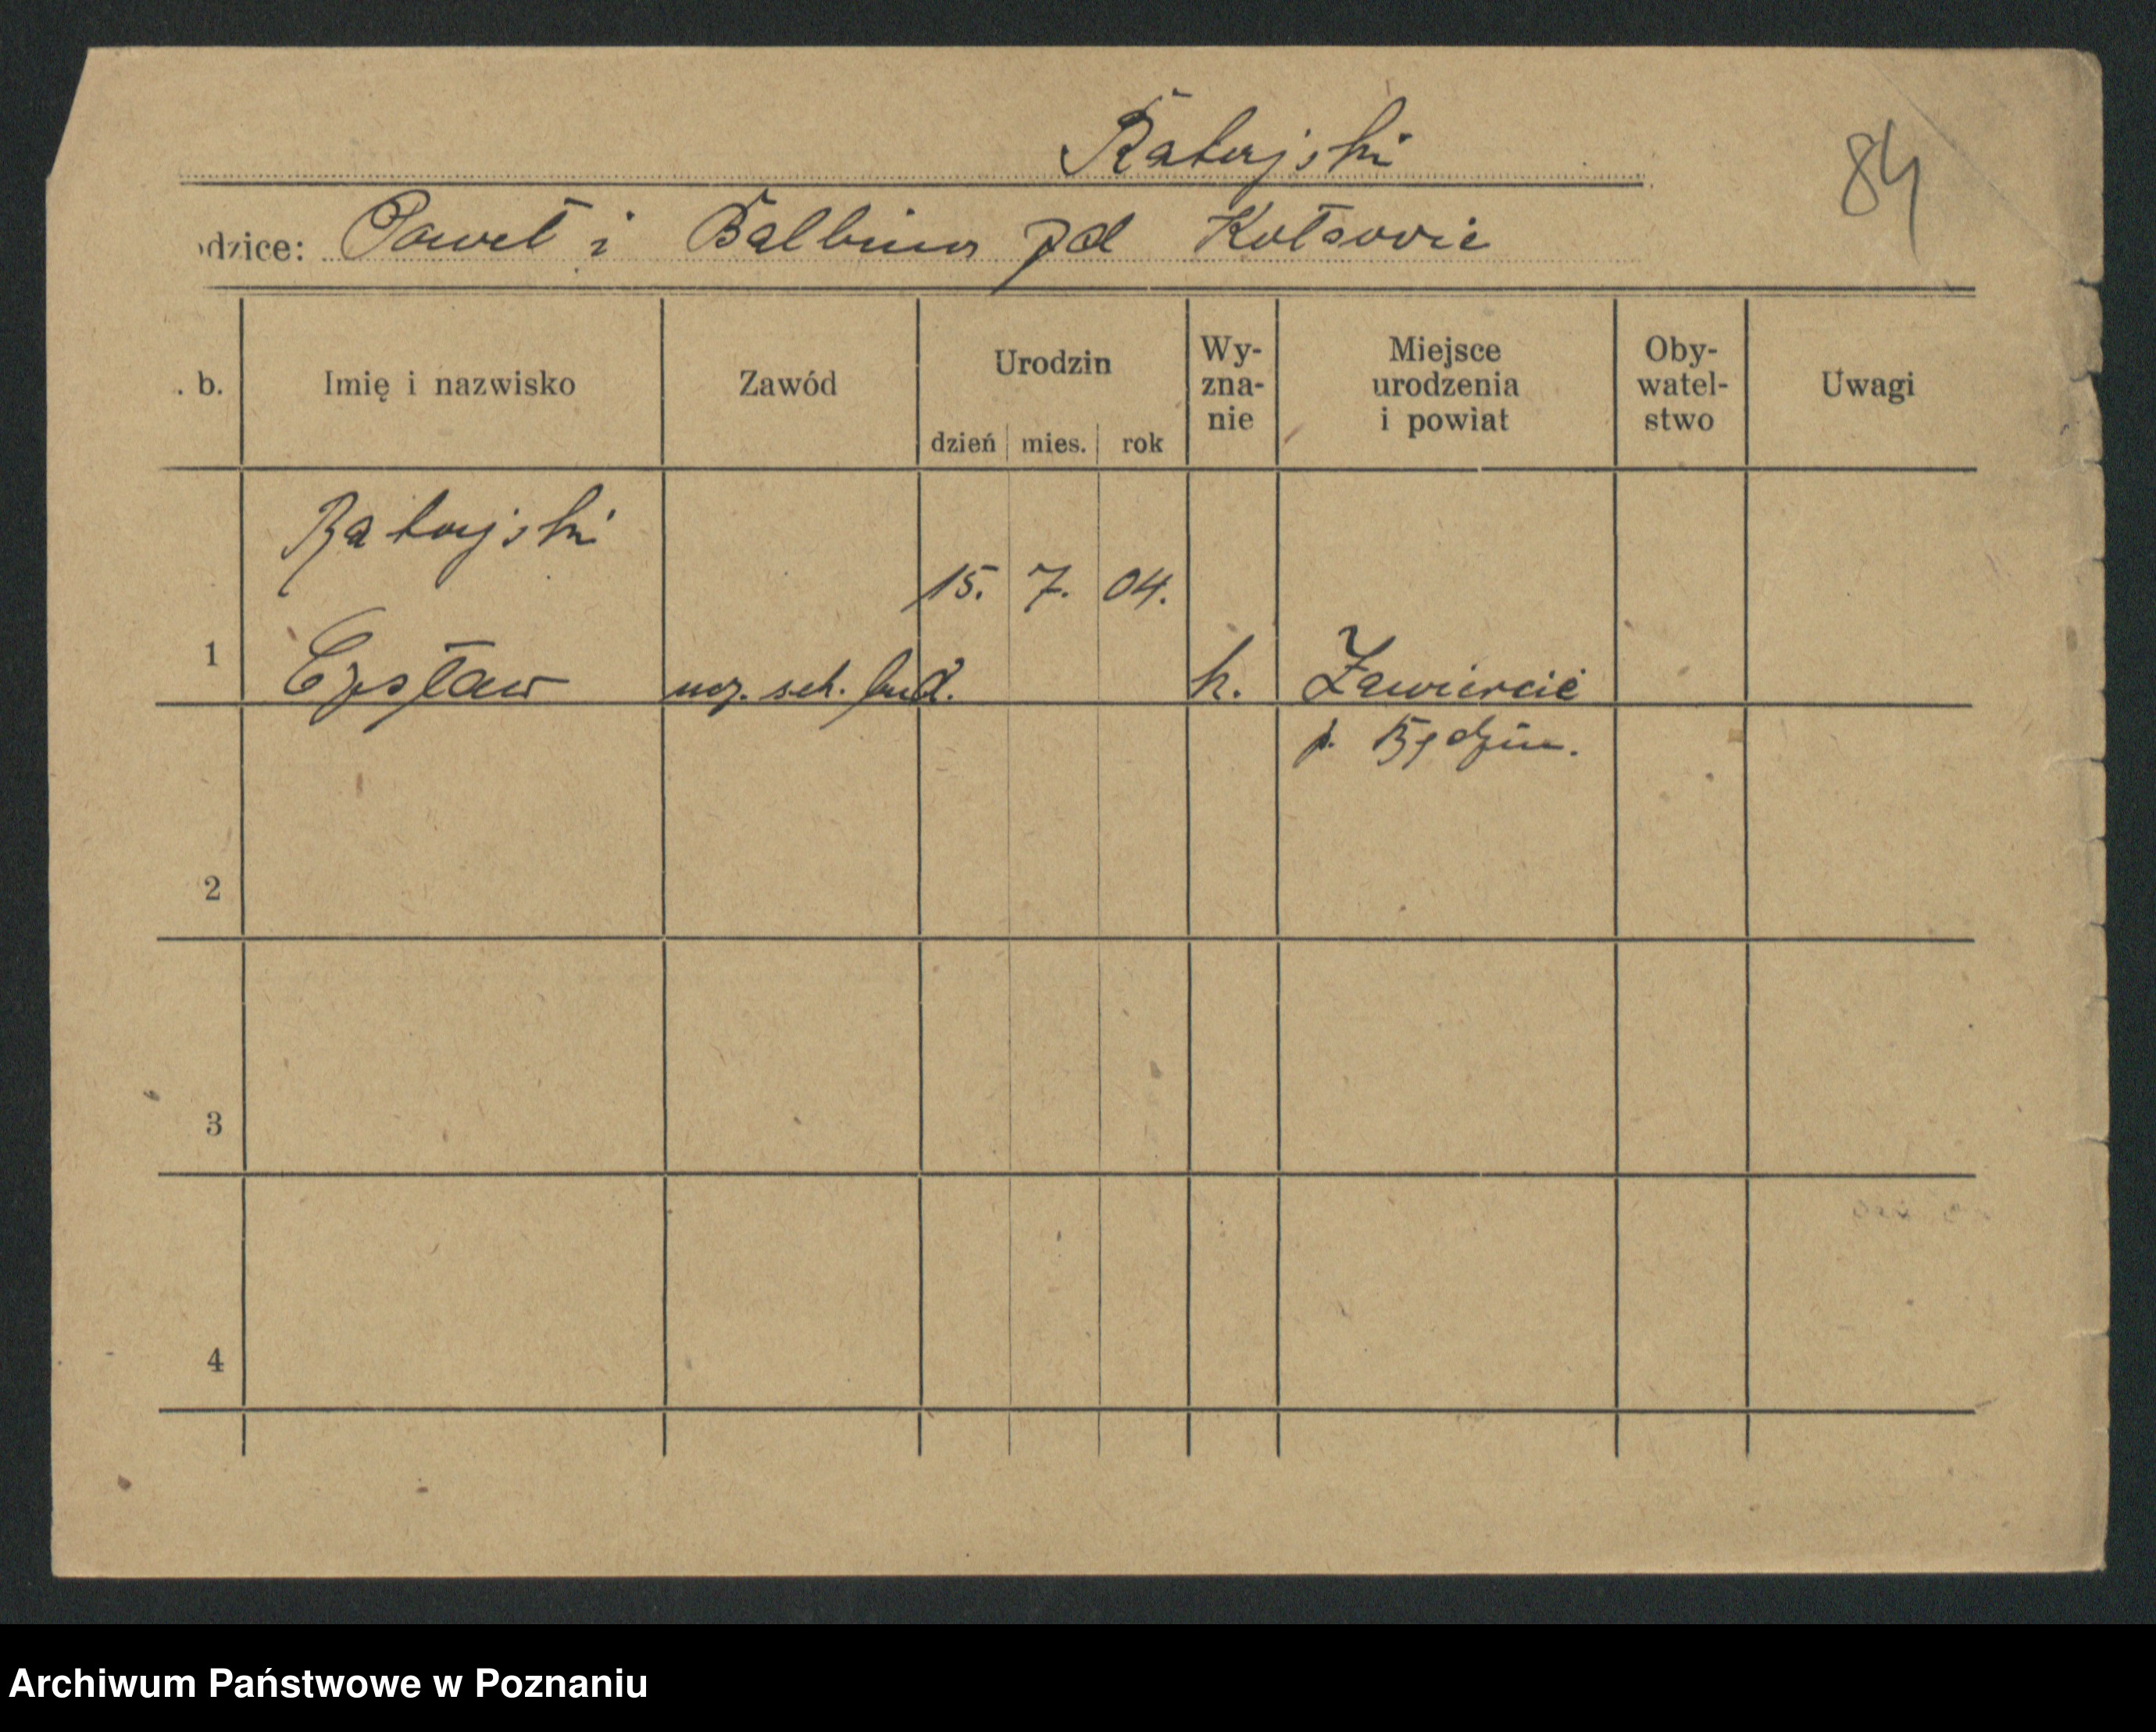 Ratajski
84
odzice: Paweł i Balbina zd
. b. Imię i nazwisko Zawód Urodzin dzień mies. rok Wy-zna-nie Miejsce urodzenia i powiat Oby-watel-stwo Uwagi
Ratajski
15. 7. 04.
1 Czesław ucz. sch. bud. k. Zawiercie
p. Będzin.
2
3
4
Archiwum Państwowe w Poznaniu